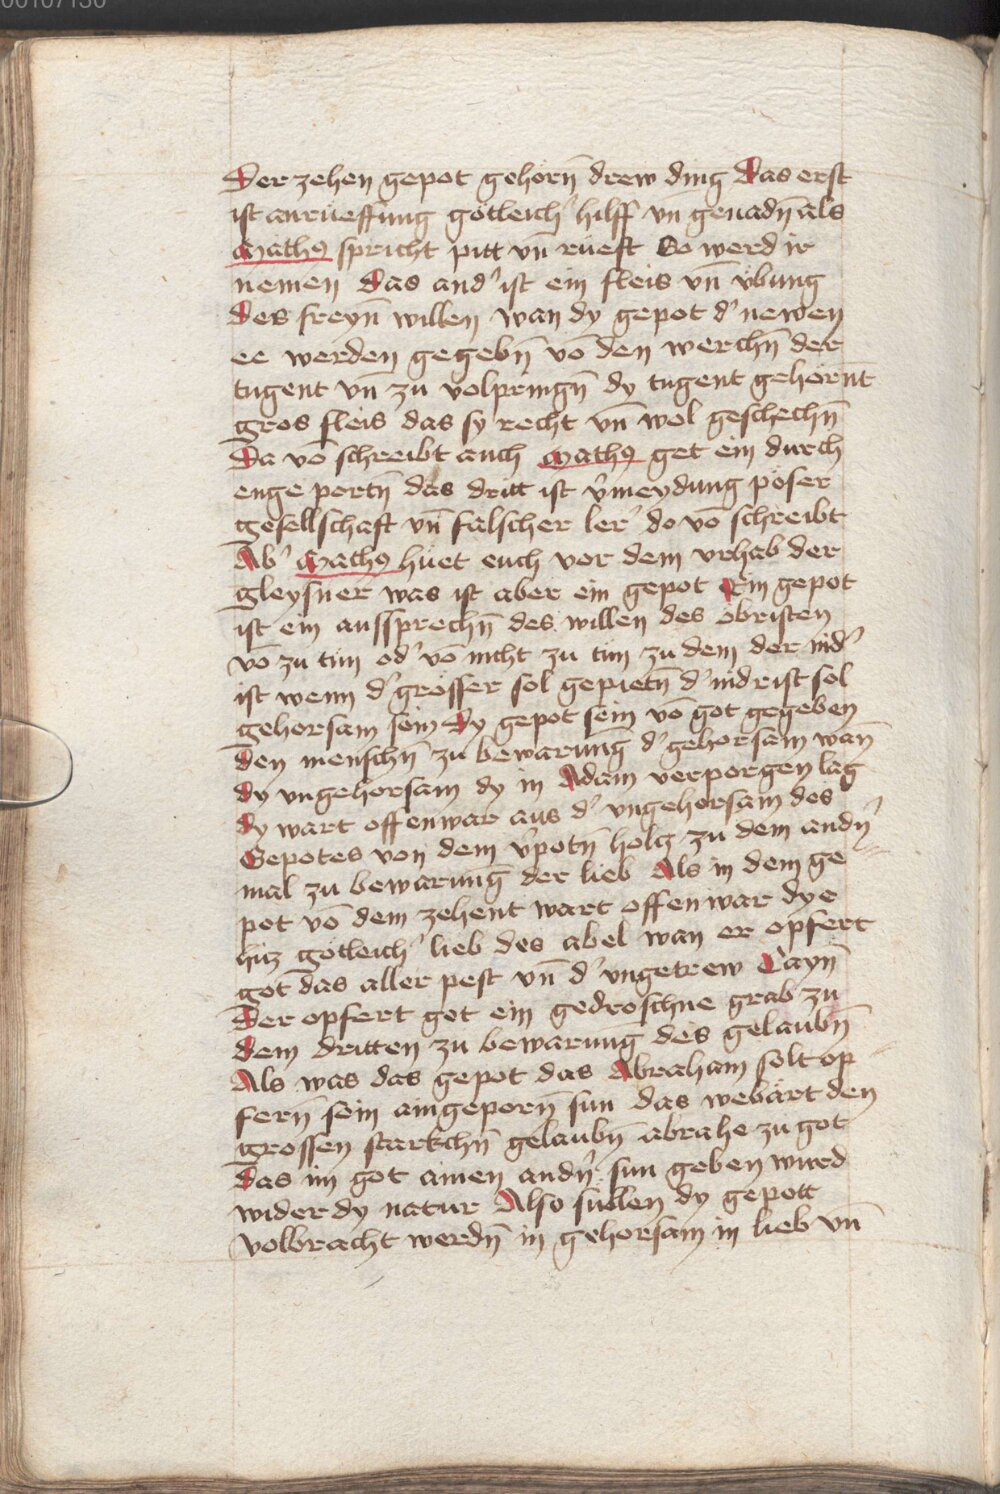 00107130
Der zehen gepot gehorn̄ drew ding Das erst
ist anrueffung gotleich' hilff vn genadn̄ als
Math9 spricht pitt vn̄ rueft So werd ir
nemen Das and' ist ein fleis vn̄ vbung
Des freyn̄ willen wan dy gepot d' newen
ee werden gegebn̄ vō den werchn̄ der
tugent vn̄ zu volpringn̄ dy tugent gehörnt
gros fleis das sy recht vn̄ wol geschechn̄
Da vō schreibt auch Math9 get ein durch
enge portn̄ das dritt ist v'meydung poser
gesellschaft vn̄ falscher ler' do vō schreibt
Ab' Math9 huet euch vor dem vrhab der
gleysner was ist aber ein gepot Ein gepot
ist ein aussprechn̄ des willen des obristen
vō zu tun od' vō nicht zu tun zu dem der nid'
ist wenn d' grosser sol gepietn̄ d' nidrist sol
gehorsam sein Dy gepot sein vō got gegeben
Den menschn̄ zu bewarung d' gehorsam wan̄
dy vngehorsam dy in Adam verporgen lag
dy wart offenwar aus d' vngehorsam des
Gepotes von dem v'potn̄ holcz zu dem andn̄'
mal zu bewarung der lieb Als in dem ge
pot vō dem zehent wart offenwar dye
hicz gotleich' lieb des abel wan er opfert
got das aller pest vn̄ d' vngetrew Cayn̄
Der opfert got ein gedroschne grab zu
dem dritten zu bewarung des gelaubn̄
Als was das gepot das Abraham solt op
fern̄ sein aingeporn̄ sun das webart den
grossen starkchn̄ gelaubn̄ abrahe zu got
Das im got ainen andn̄' sun geben wurd
wider dy natur Also sullen dy gepott
volbracht werdn̄ in gehorsam in lieb vn̄